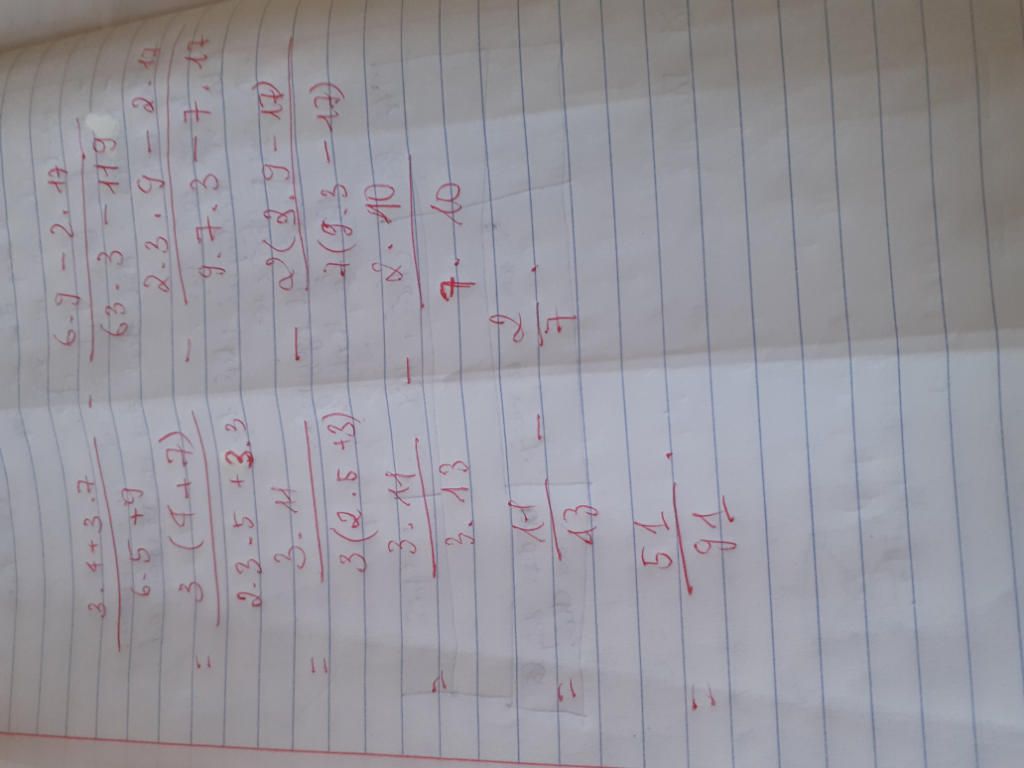 3.4+3.7 / 6.5+9 - 6.9-2.17 / 63.3-119
= 3(4+7) / 2.3.5+3.3 - 2.3.9-2.17 / 9.7.3-7.17
= 3.11 / 3(2.5+3) - 2(3.9-17) / 7(9.3-17)
= 3.11 / 3.13 - 2.10 / 7.10
= 11 / 13 - 2 / 7 .
= 51 / 91 .